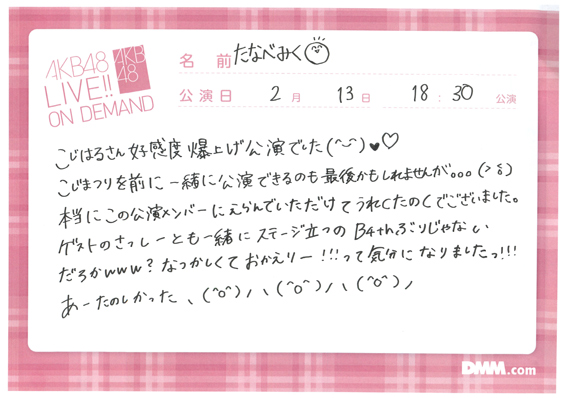 AKB48
LIVE!!
ON DEMAND
AKB
48
名 前 たなべみく
公演日 2月 13日 18:30 公演
こじはるさん好感度爆上げ公演でした(^~^)♥♡
こじまつりを前に一緒に公演できるのも最後かもしれませんが。。。(>δ)
本当にこの公演メンバーにえらんでいただけてうれしたのしでございました。
ゲストのさっしーとも一緒にステージ立つのB4thぶりじゃない
だろかwww?なつかしくておかえりー!!!って気分になりましたっ!!!
あーたのしかった、(^o^)ノ、(^o^)ノ、(^o^)ノ
DMM.com